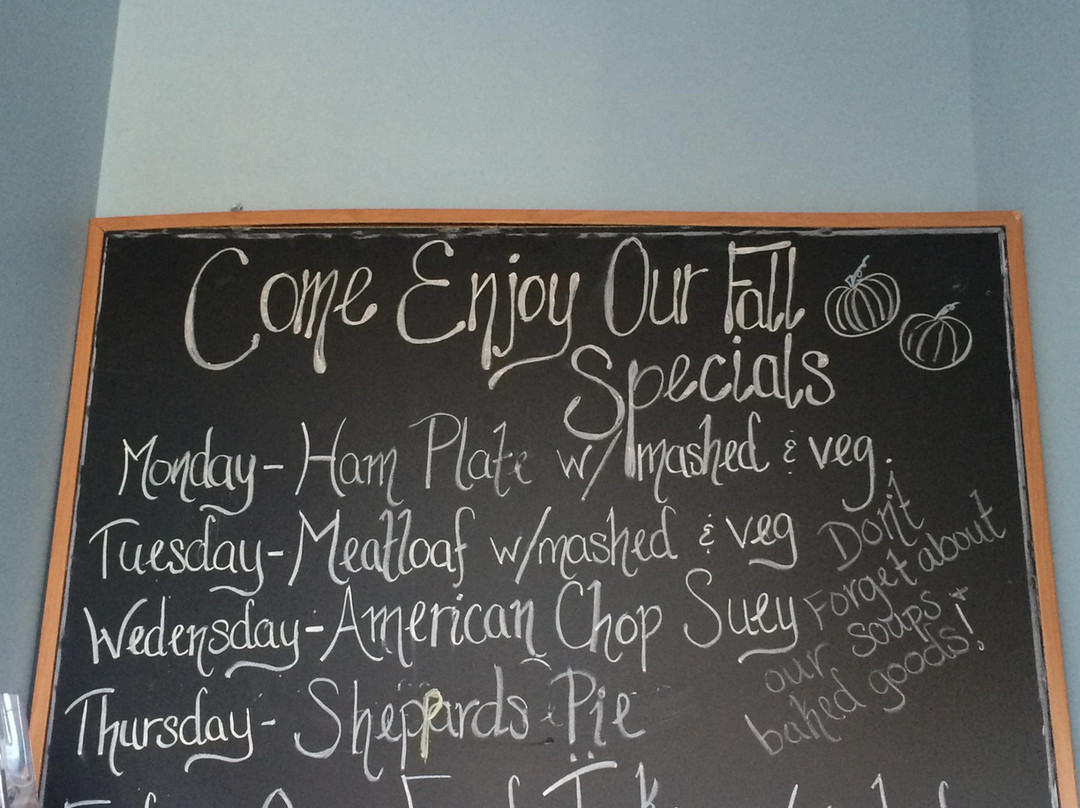 Come Enjoy Our Fall
Specials
Monday- Ham Plate w/ mashed & veg.
Tuesday- Meatloaf w/mashed & veg
Wedensday- American Chop Suey
Thursday- Sheppards Pie
Don't
Forget about
our soups +
baked goods!